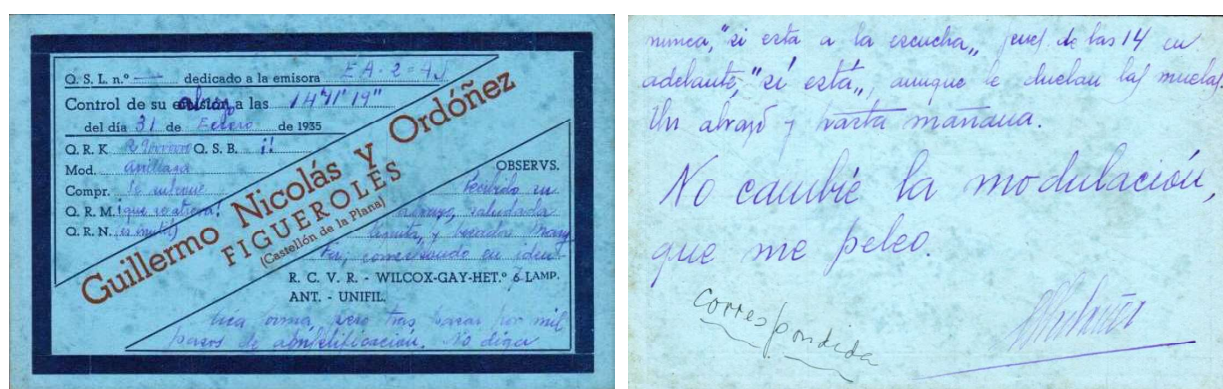 Q. S. L. n.º — dedicado a la emisora EA-2-A
Control de su a las 14'11'19"
del día 31 de Enero de 1935
Q. R. K. Q. S. B. ¡!
Mod.
Compr. Se entiende
Q. R. M. ¡que se atreva!
Q. R. N. (es inutil)
Guillermo Nicolás y Ordóñez
FIGUEROLES
(Castellón de la Plana)
OBSERVS.
Recibido su
abrazo, saludada
Anita, y besados Mary
comerciando en iden-
R. C. V. R. - WILCOX-GAY-HET.º 6 LAMP.
ANT. - UNIFIL.
tica forma, pero tras pasar por mil
pasos de amplificación. No diga
nunca, "si esta a la escucha„ pues de las 14 en
adelante, "sí está„, aunque le duelan las muelas.
Un abrazo y hasta mañana.
No cambie la modulación,
que me peleo.
correspondida